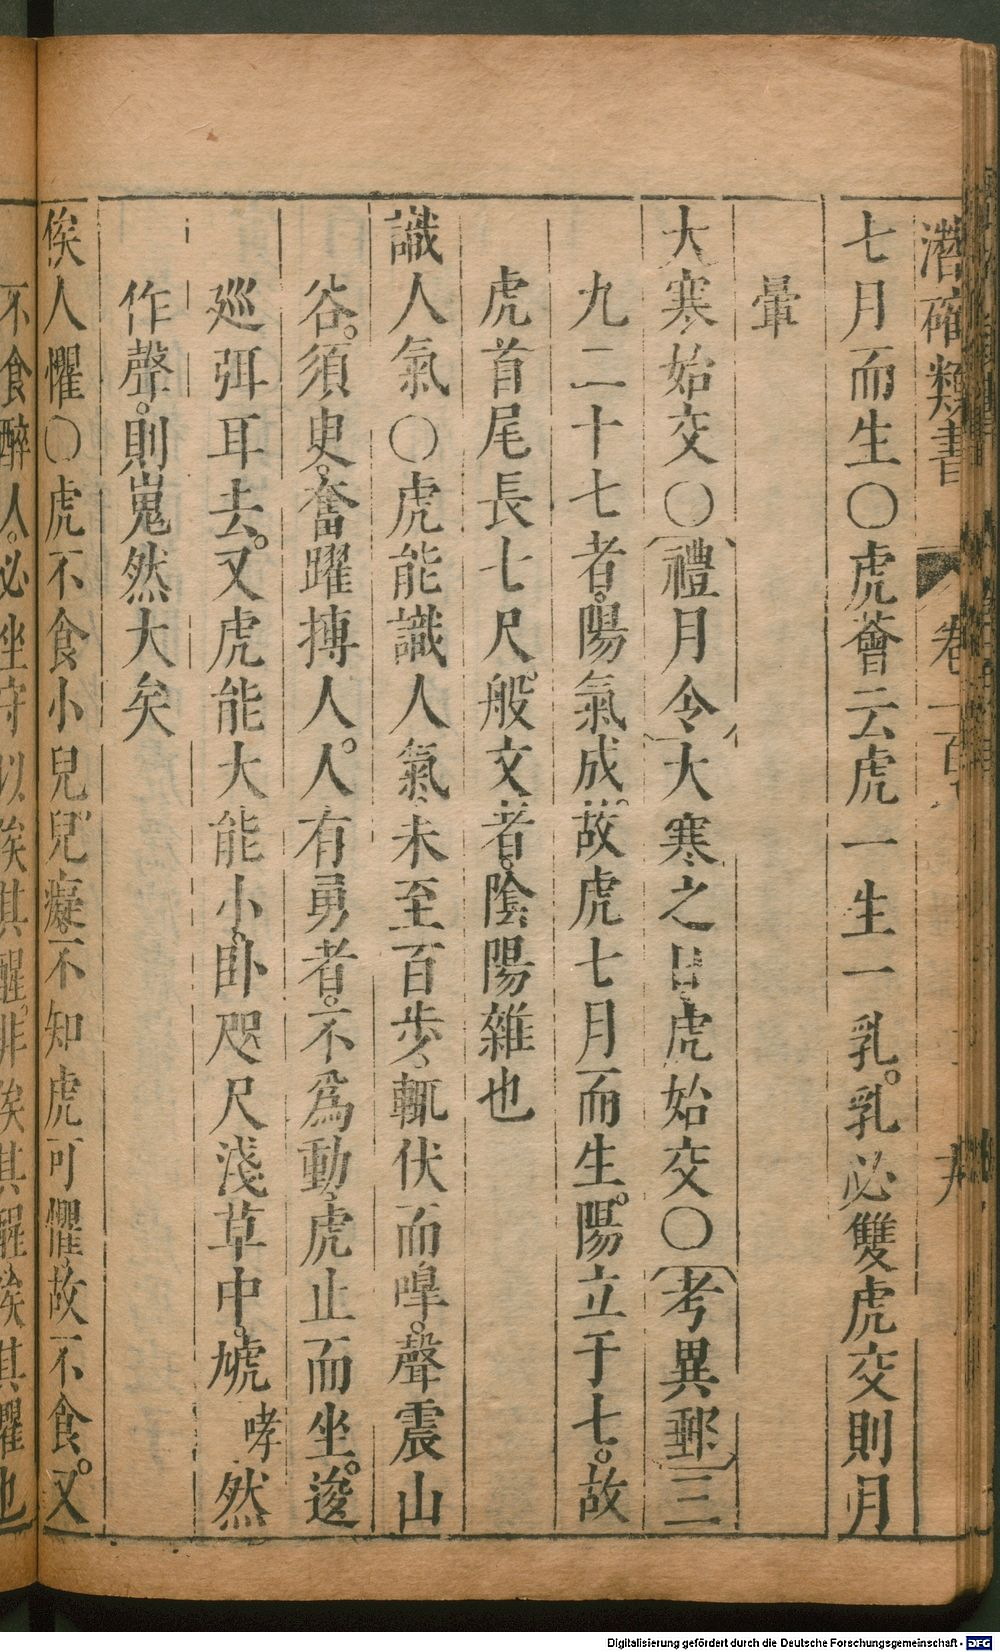 潛確類書 卷一百
七月而生○虎薈云虎一生一乳。乳必雙虎交則月
暈
大寒始交○禮月令大寒之日虎始交○考異郵三
九二十七者。陽氣成。故虎七月而生。陽立于七。故
虎首尾長七尺。般文者。陰陽雜也
識人氣○虎能識人氣、未至百步、輒伏而嘷。聲震山
谷。須臾。奮躍搏人。人有勇者。不爲動、虎止而坐。逡
巡弭耳去。又虎能大能小。臥咫尺淺草中。虓哮然
作聲。則嵬然大矣
俟人懼○虎不食小兒兒癡、不知虎可懼、故不食。又
不食醉人。必坐守以俟其醒。非俟其醒、俟其懼也
Digitalisierung gefördert durch die Deutsche Forschungsgemeinschaft - DFG